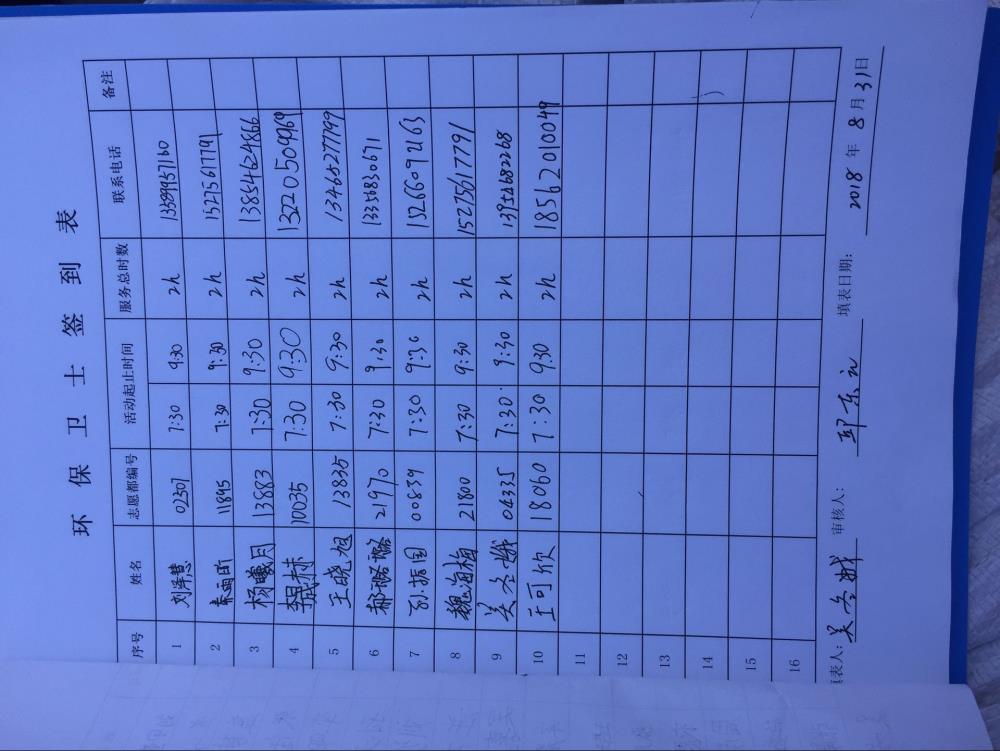 环 保 卫 士 签 到 表
序号 姓名 志愿都编号 活动起止时间 服务总时数 联系电话 备注
1 刘泽慧 02307 7:30 9:30 2h
2 秦雨昕 11895 7:30 9:30 2h 15275617791
3 杨曦月 13883 7:30 9:30 2h 13854624866
4 10035 7:30 9:30 2h 13220509969
5 王晓旭 13835 7:30 9:30 2h 13465277199
6 郝璐璐 21970 7:30 9:30 2h 13356830671
7 00839 7:30 9:30 2h 15266092163
8 魏海梅 21800 7:30 9:30 2h 15275617791
9 吴冬娥 04335 7:30 9:30 2h 13954682268
10 王可欣 18060 7:30 9:30 2h 18562010049
11
12
13
14
15
16
填表人: 吴冬娥 审核人: 邱东 填表日期: 2018 年 8 月 31 日